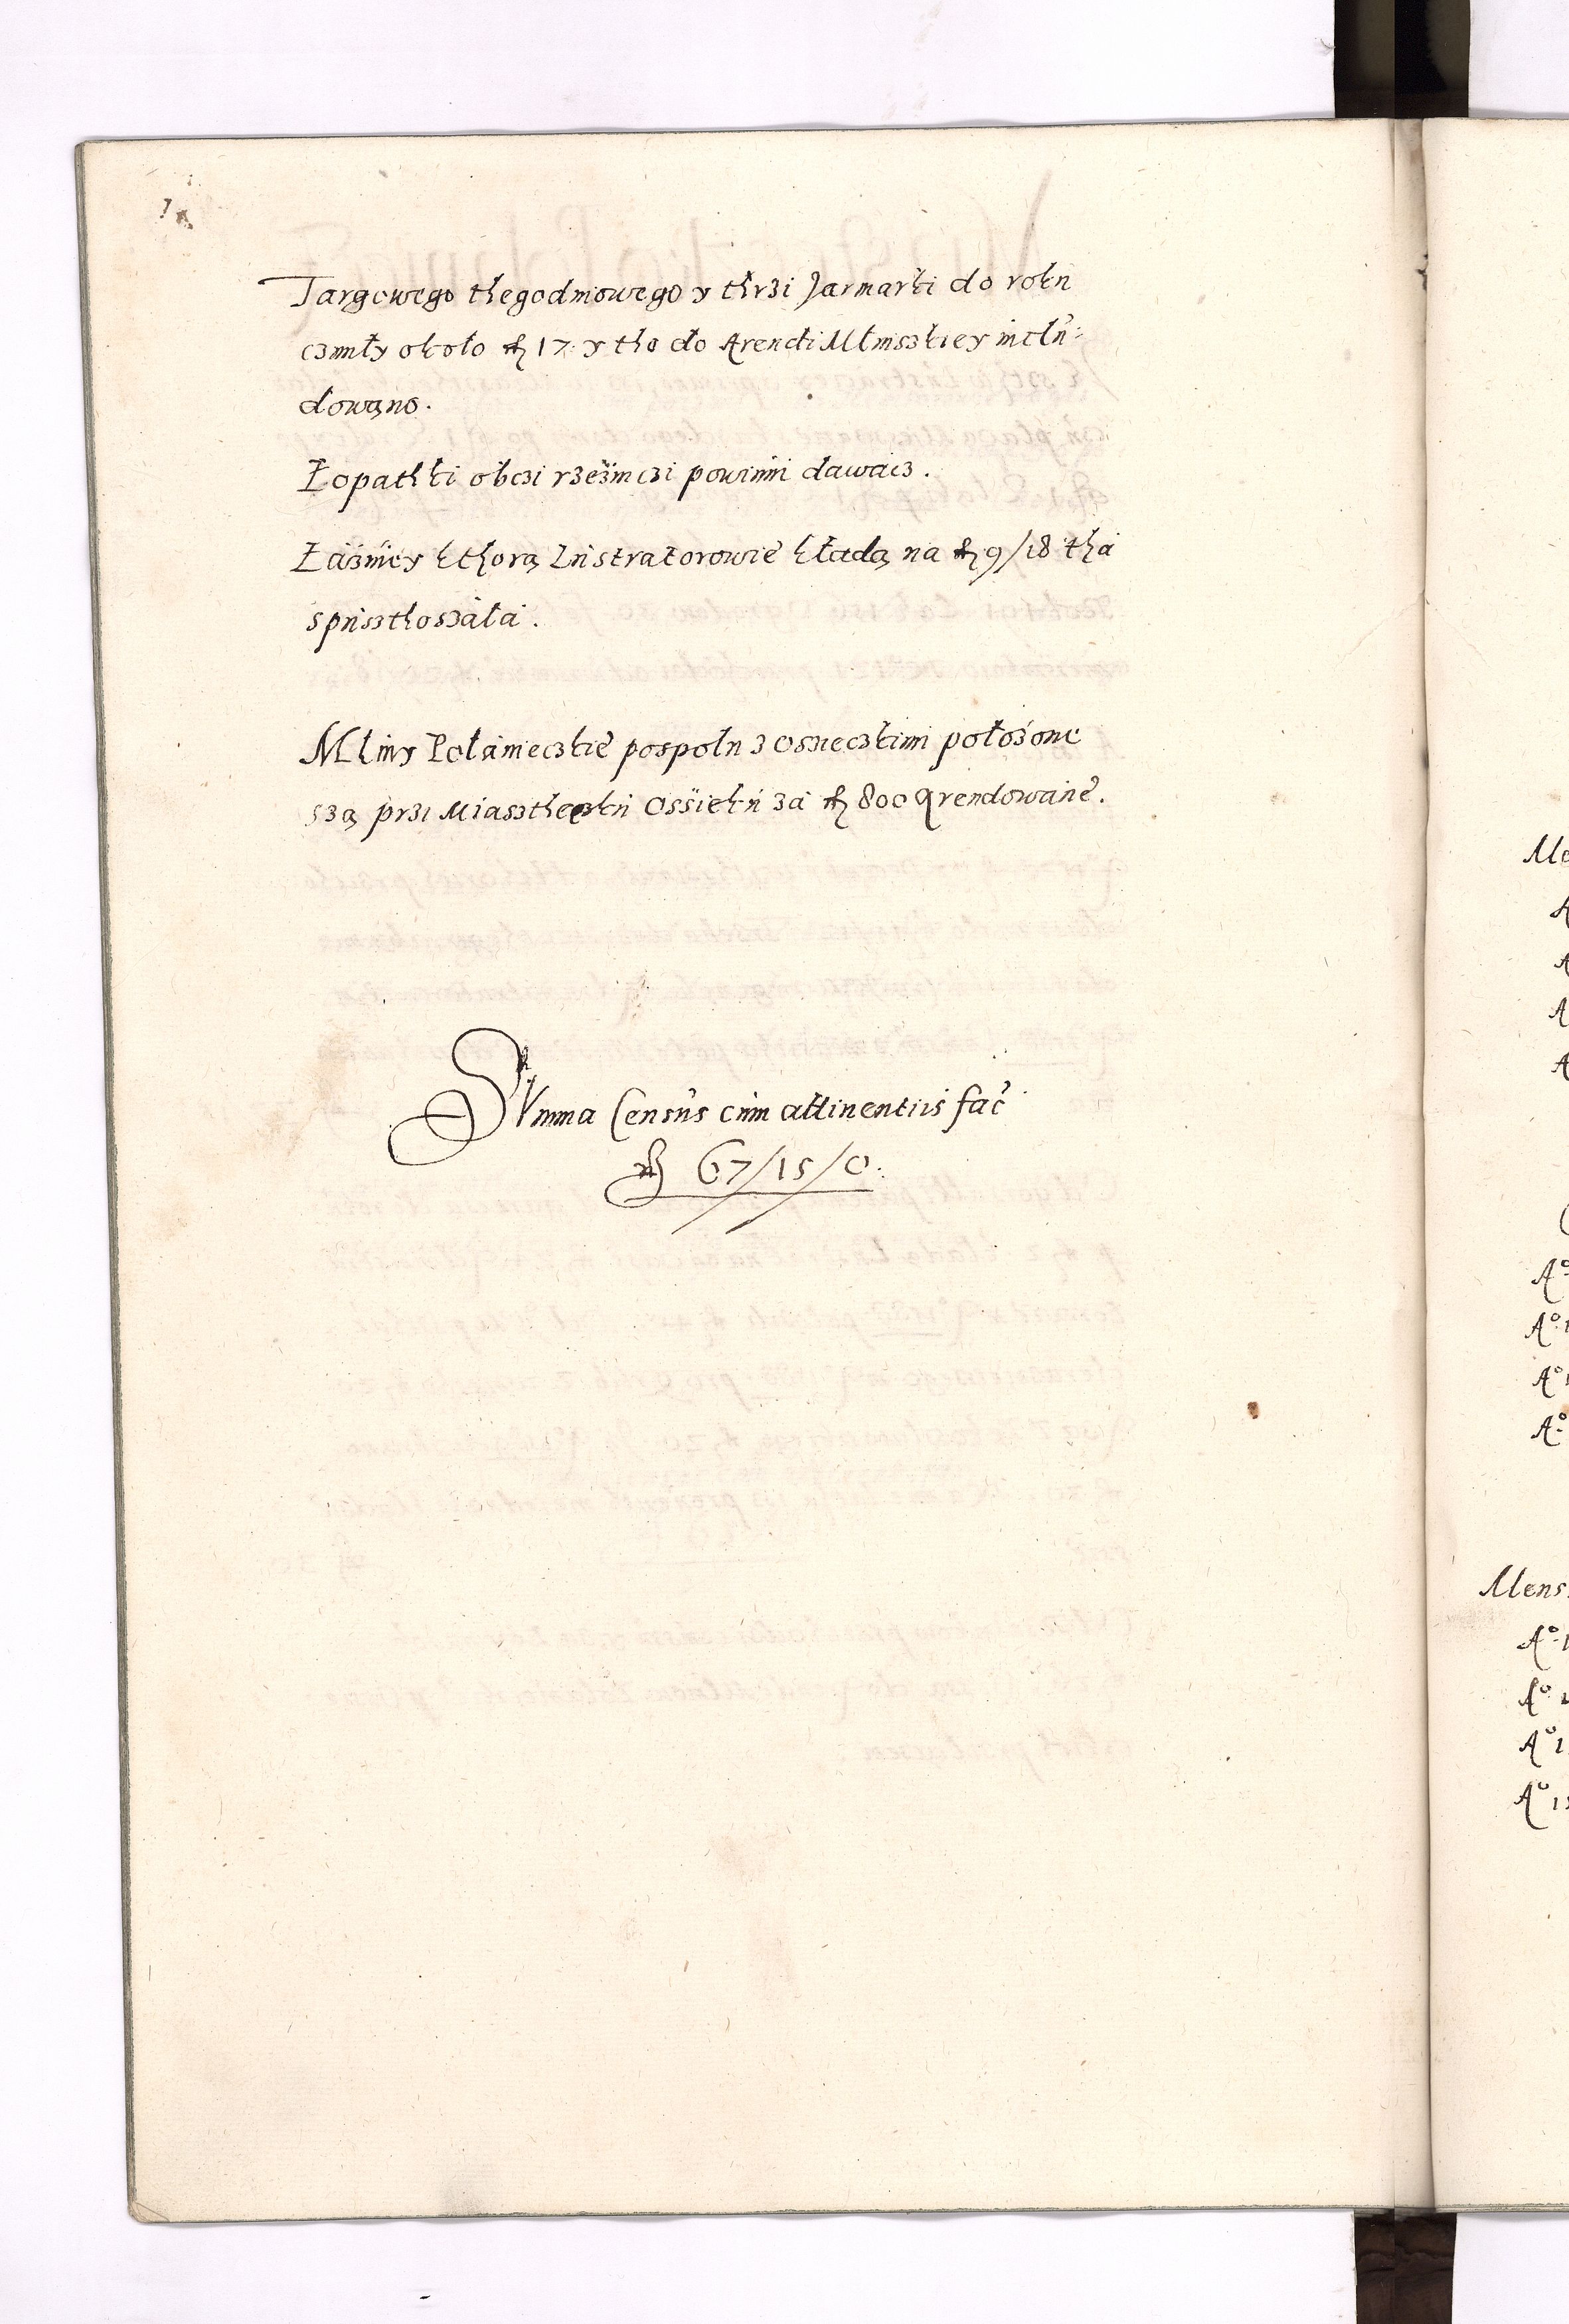 Targowego thegodniowego y thrzi Jarmarki do roku
cziniły około fl 17 y tho do Arendi Młinszkiey inclu-
dowano.
Łopathki obczi rzeźniczi powinni dawacz.
Łaźniey kthorą Lustratorowie kładą na fl 9/18 tha
spusthoszała.
Młiny Połanieczkie pospołu z Osieczkimi położone
szą przi Miaszteczku Ossieku za fl 800 Arendowane.
Summa Census cum attinentiis fac
fl 67/15/0.
Mens
Aº
Aº
Aº
Aº
Aº
Aº
Aº
Aº